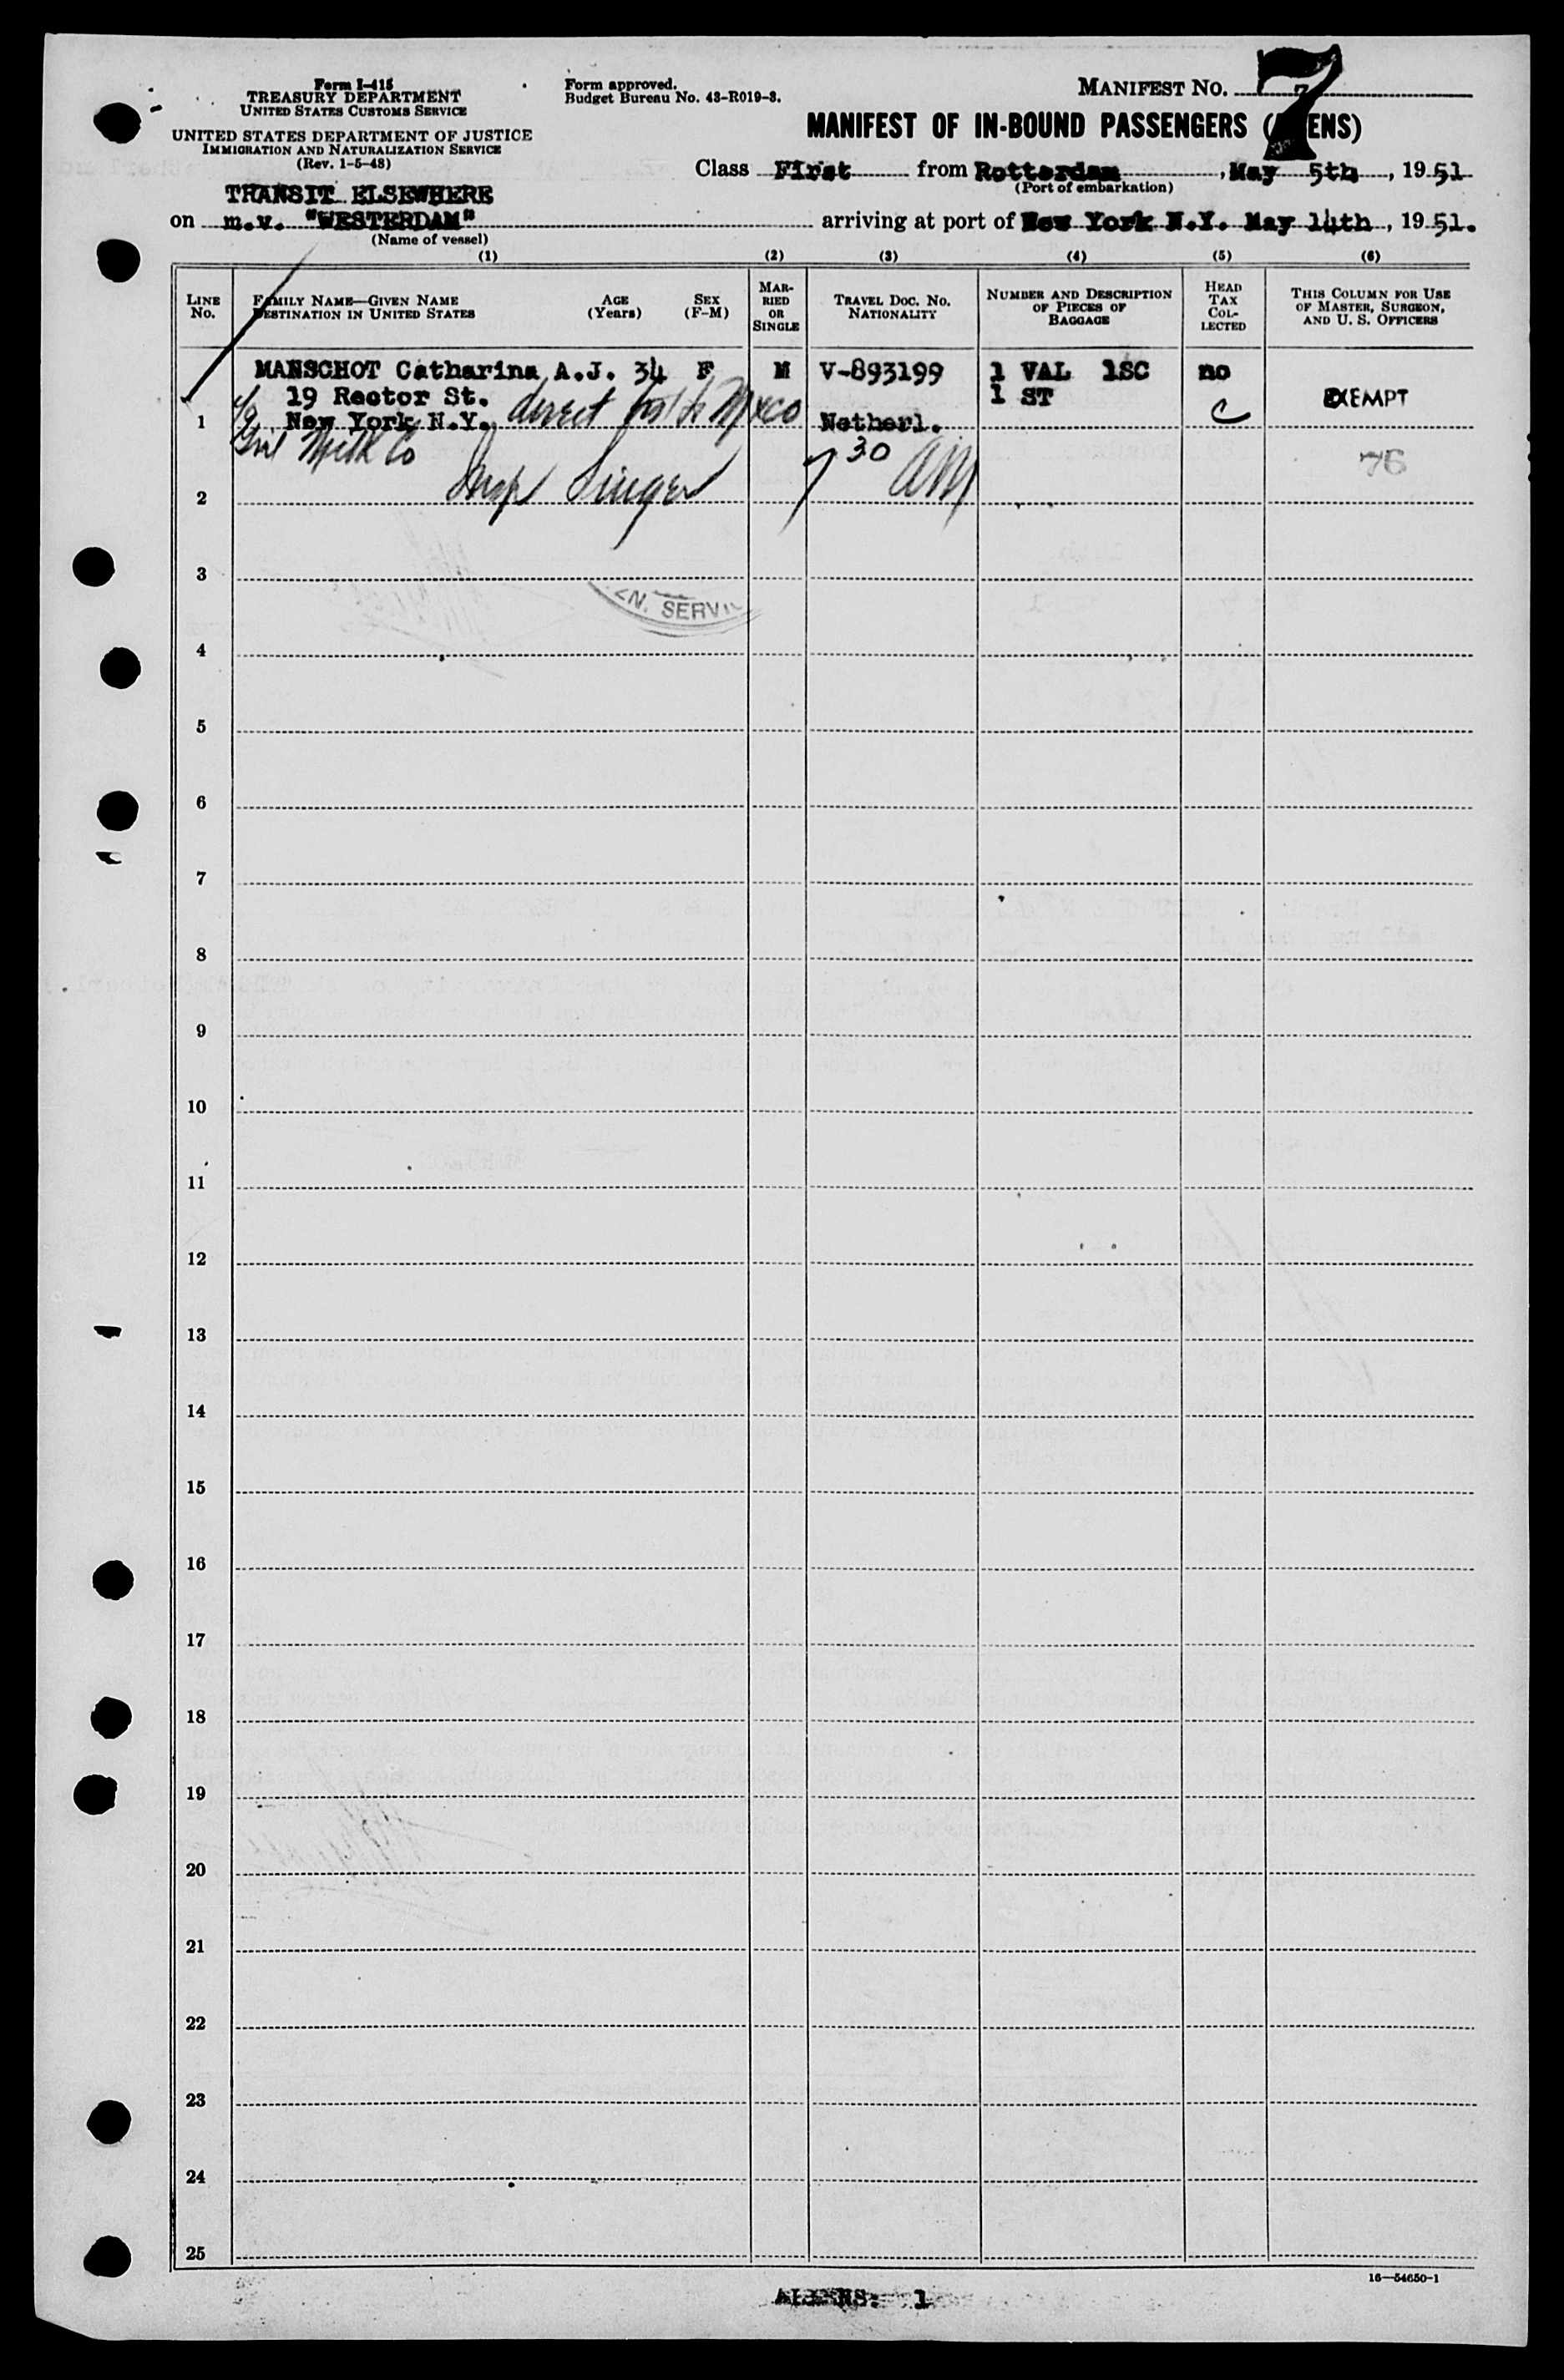 Form I-415
TREASURY DEPARTMENT
UNITED STATES CUSTOMS SERVICE
UNITED STATES DEPARTMENT OF JUSTICE
IMMIGRATION AND NATURALIZATION SERVICE
(Rev. 1-5-48)
Form approved.
Budget Bureau No. 43-R019-3.
MANIFEST No. 7
MANIFEST OF IN-BOUND PASSENGERS (ALIENS)
Class First from Rotterdam, May 5th, 1951
(Port of embarkation)
TRANSIT ELSEWHERE
on m.v. "WESTERDAM" arriving at port of New York N.Y. May 14th, 1951.
(Name of vessel)
(1) (2) (3) (4) (5) (6)
LINE No.
FAMILY NAME—GIVEN NAME
DESTINATION IN UNITED STATES
AGE (Years)
SEX (F-M)
MARRIED OR SINGLE
TRAVEL DOC. NO. NATIONALITY
NUMBER AND DESCRIPTION OF PIECES OF BAGGAGE
HEAD TAX COLLECTED
THIS COLUMN FOR USE OF MASTER, SURGEON, AND U. S. OFFICERS
MANSCHOT Catharina A.J. 34 F M V-893199 1 VAL 1SC no
19 Rector St. 1 ST EXEMPT
1 New York N.Y. direct to Mxco Netherl. C
Gnl Milk Co 30 AM 76
2 Insp Singer 7
3
EN. SERVI
4
5
6
7
8
9
10
11
12
13
14
15
16
17
18
19
20
21
22
23
24
25
16—54650-1
ALIENS: 1